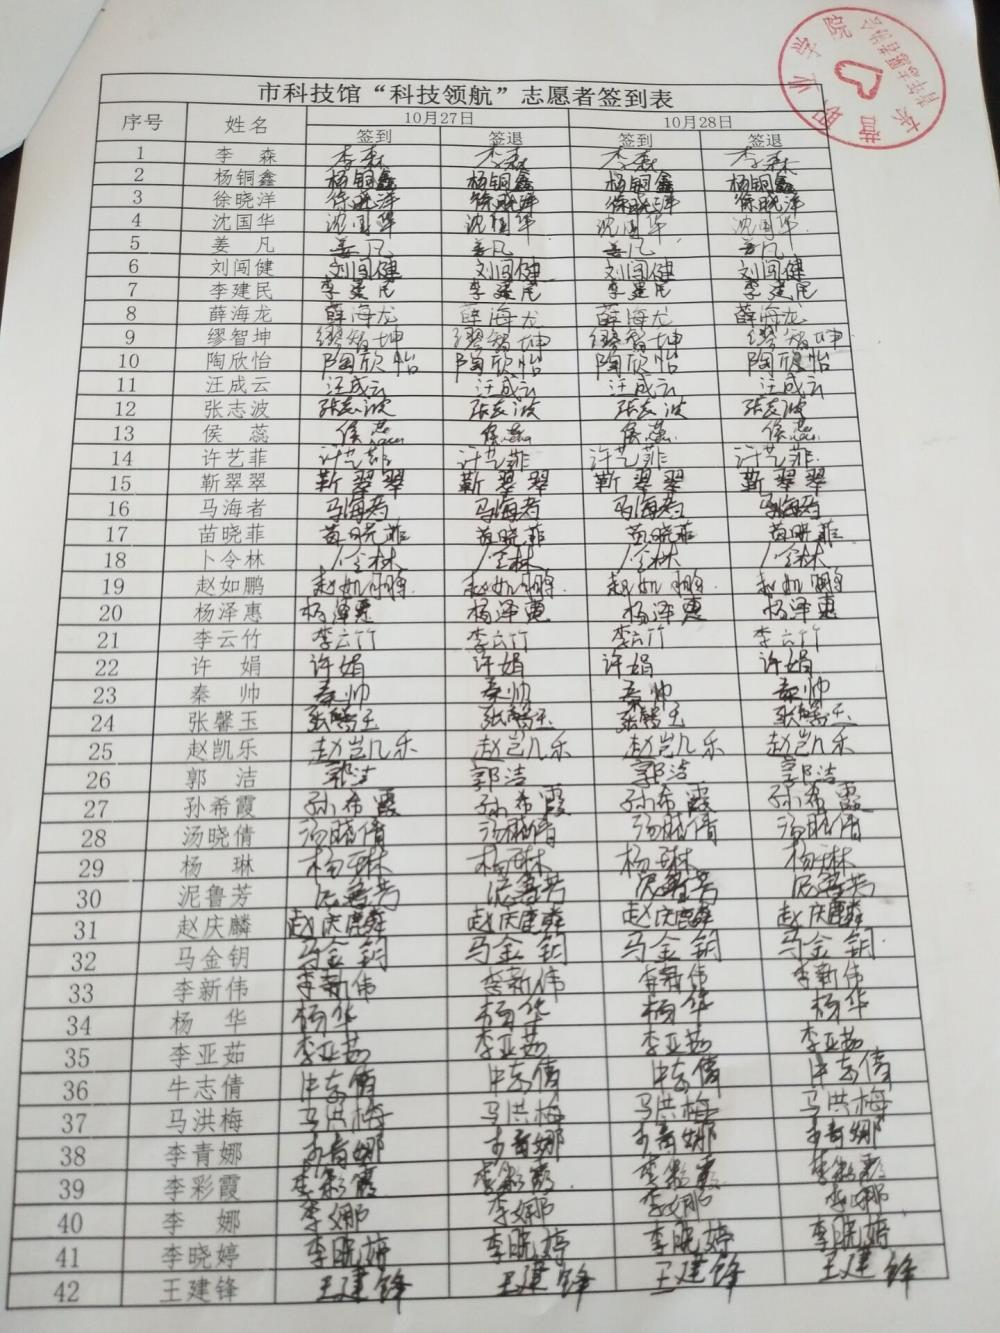 市科技馆“科技领航”志愿者签到表
序号 姓名 10月27日 10月28日
签到 签退 签到 签退
1 李 森 李森 李森 李森 李森
2 杨铜鑫 杨铜鑫 杨铜鑫 杨铜鑫 杨铜鑫
3 徐晓洋 徐晓洋 徐晓洋 徐晓洋 徐晓洋
4 沈国华 沈国华 沈国华 沈国华 沈国华
5 姜 凡 姜凡 姜凡 姜凡 姜凡
6 刘闯健 刘闯健 刘闯健 刘闯健 刘闯健
7 李建民 李建民 李建民 李建民 李建民
8 薛海龙 薛海龙 薛海龙 薛海龙 薛海龙
9 缪智坤 缪智坤 缪智坤 缪智坤 缪智坤
10 陶欣怡 陶欣怡 陶欣怡 陶欣怡 陶欣怡
11 汪成云 汪成云 汪成云 汪成云 汪成云
12 张志波 张志波 张志波 张志波 张志波
13 侯 蕊 侯蕊 侯蕊 侯蕊 侯蕊
14 许艺菲 许艺菲 许艺菲 许艺菲 许艺菲
15 靳翠翠 靳翠翠 靳翠翠 靳翠翠 靳翠翠
16 马海者 马海者 马海者 马海者 马海者
17 苗晓菲 苗晓菲 苗晓菲 苗晓菲 苗晓菲
18 卜令林 卜令林 卜令林 卜令林 卜令林
19 赵如鹏 赵如鹏 赵如鹏 赵如鹏 赵如鹏
20 杨泽惠 杨泽惠 杨泽惠 杨泽惠 杨泽惠
21 李云竹 李云竹 李云竹 李云竹 李云竹
22 许 娟 许娟 许娟 许娟 许娟
23 秦 帅 秦帅 秦帅 秦帅 秦帅
24 张馨玉 张馨玉 张馨玉 张馨玉 张馨玉
25 赵凯乐 赵凯乐 赵凯乐 赵凯乐 赵凯乐
26 郭 洁 郭洁 郭洁 郭洁 郭洁
27 孙希霞 孙希霞 孙希霞 孙希霞 孙希霞
28 汤晓倩 汤晓倩 汤晓倩 汤晓倩 汤晓倩
29 杨 琳 杨琳 杨琳 杨琳 杨琳
30 泥鲁芳 泥鲁芳 泥鲁芳 泥鲁芳 泥鲁芳
31 赵庆麟 赵庆麟 赵庆麟 赵庆麟 赵庆麟
32 马金钥 马金钥 马金钥 马金钥 马金钥
33 李新伟 李新伟 李新伟 李新伟 李新伟
34 杨 华 杨华 杨华 杨华 杨华
35 李亚茹 李亚茹 李亚茹 李亚茹 李亚茹
36 牛志倩 牛志倩 牛志倩 牛志倩 牛志倩
37 马洪梅 马洪梅 马洪梅 马洪梅 马洪梅
38 李青娜 李青娜 李青娜 李青娜 李青娜
39 李彩霞 李彩霞 李彩霞 李彩霞 李彩霞
40 李 娜 李娜 李娜 李娜 李娜
41 李晓婷 李晓婷 李晓婷 李晓婷 李晓婷
42 王建锋 王建锋 王建锋 王建锋 王建锋